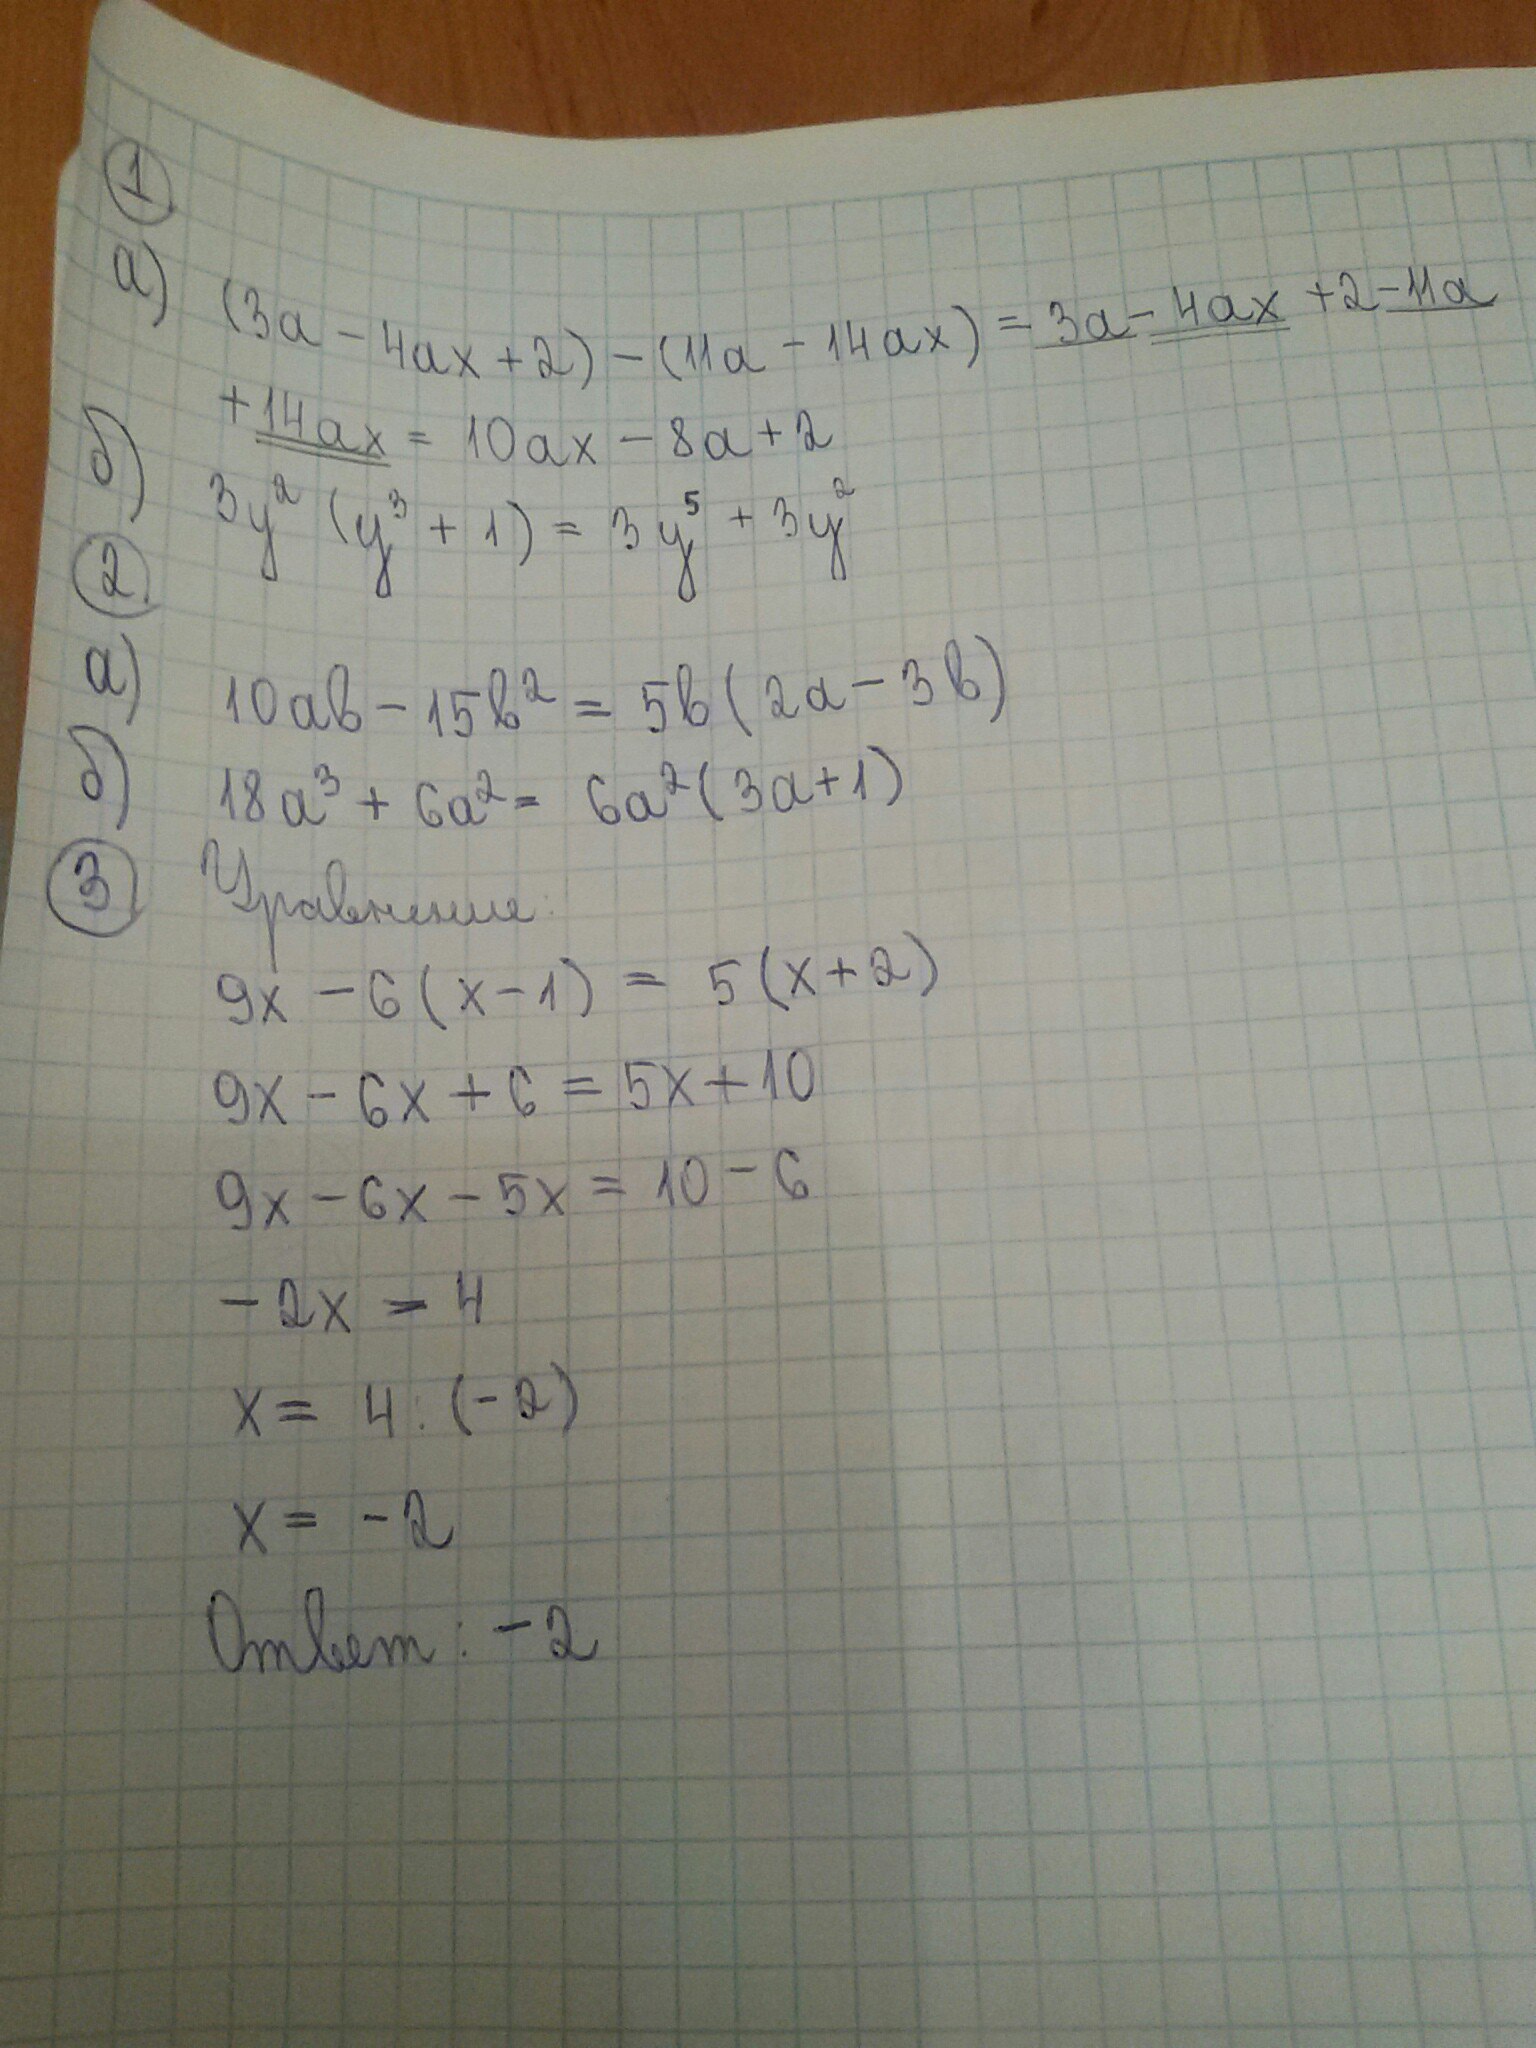 1
а) (3a - 4ax + 2) - (11a - 14ax) = 3a - 4ax + 2 - 11a
+ 14ax = 10ax - 8a + 2
б) 3y² (y³ + 1) = 3y⁵ + 3y²
2
а) 10ab - 15b² = 5b(2a - 3b)
б) 18a³ + 6a² = 6a²(3a + 1)
3 Уравнение:
9x - 6(x - 1) = 5(x + 2)
9x - 6x + 6 = 5x + 10
9x - 6x - 5x = 10 - 6
-2x = 4
x = 4 : (-2)
x = -2
Ответ: -2